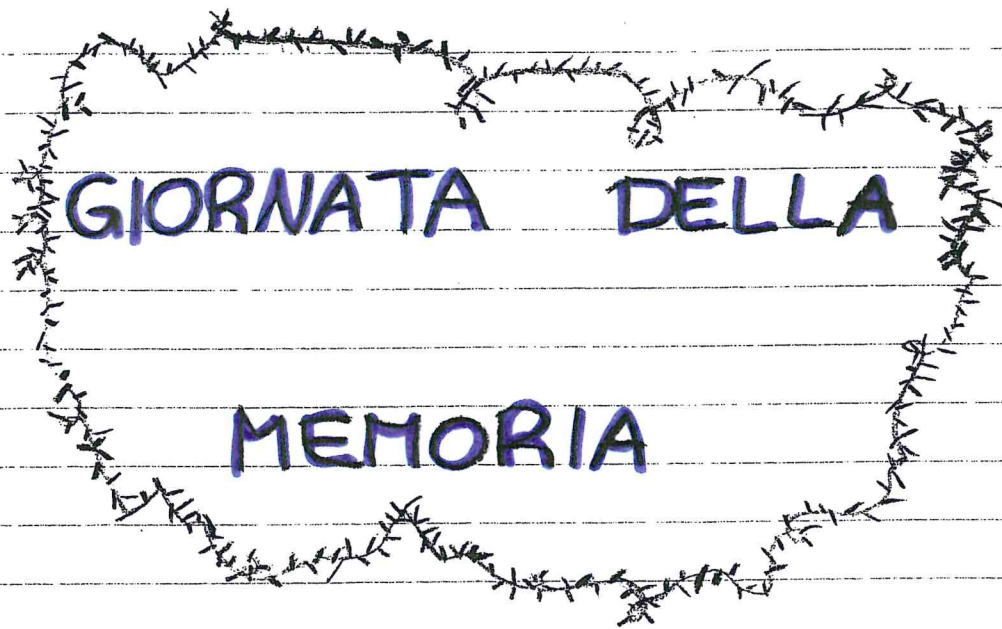 GIORNATA DELLA
MEMORIA